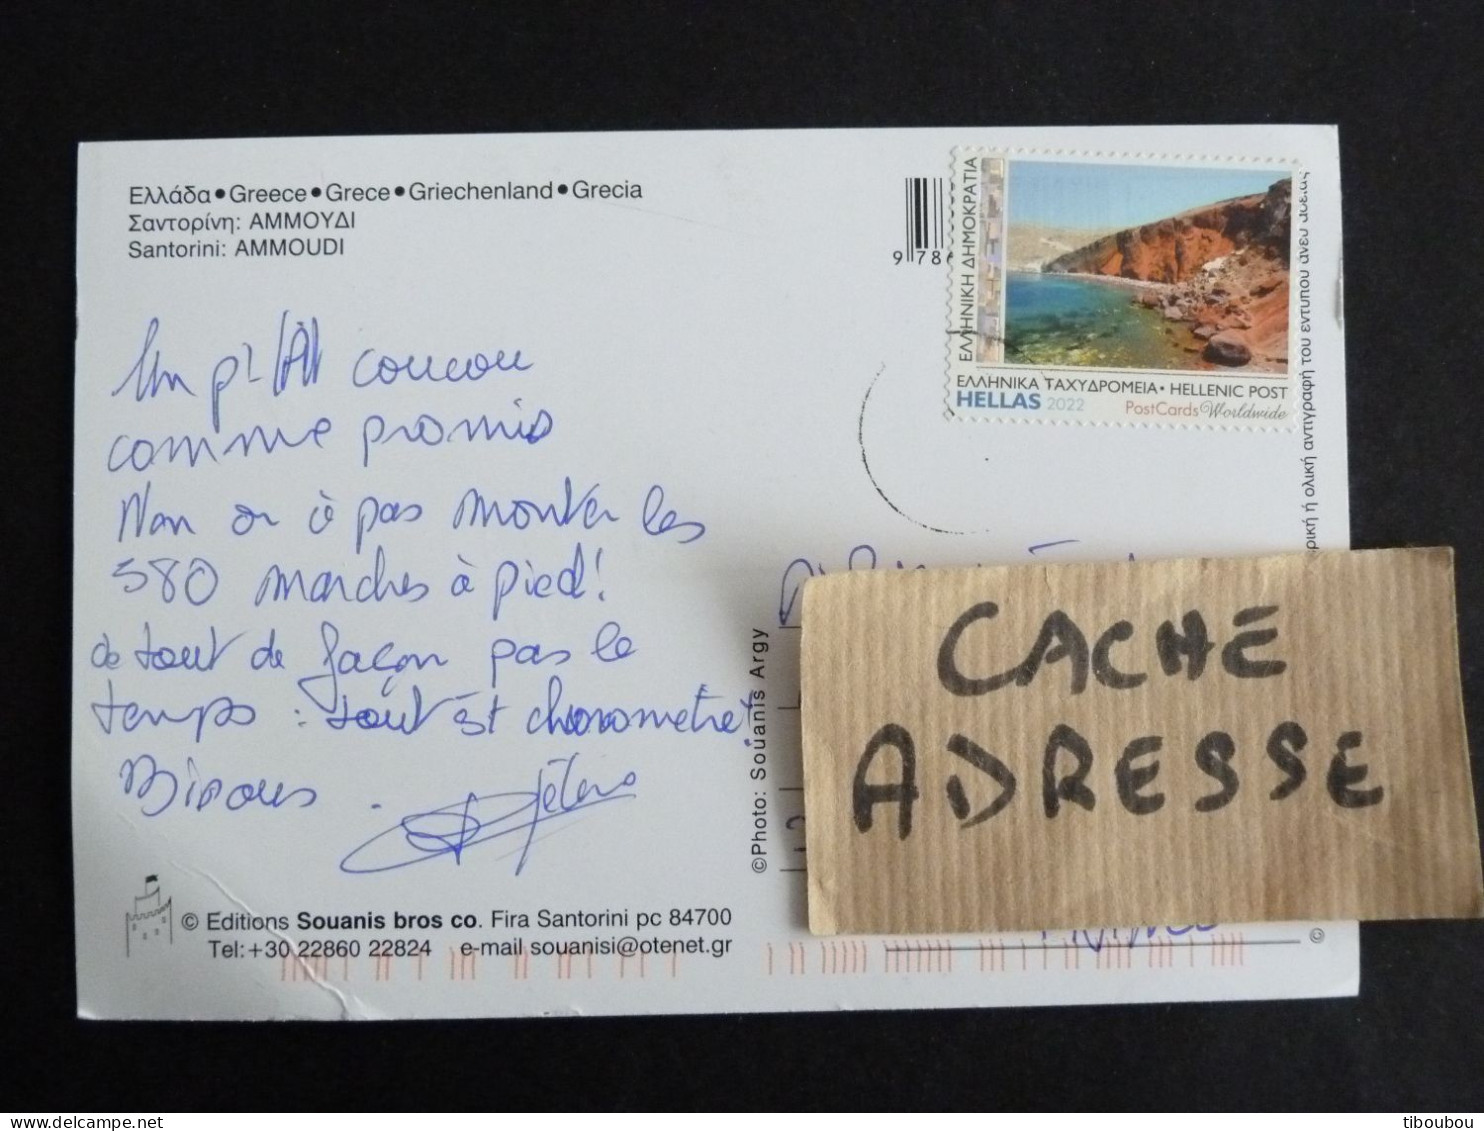 Ελλάδα • Greece • Grece • Griechenland • Grecia
Σαντορίνη: ΑΜΜΟΥΔΙ
Santorini: AMMOUDI
Un coucou
comme promis
Non on à pas monter les
580 marches à pied!
de tout de façon pas le
temps : tout est chronometré!
Bisous.
© Editions Souanis bros co. Fira Santorini pc 84700
Tel:+30 22860 22824 e-mail souanisi@otenet.gr
©Photo: Souanis Argy
978
ΕΛΛΗΝΙΚΗ ΔΗΜΟΚΡΑΤΙΑ
ΕΛΛΗΝΙΚΑ ΤΑΧΥΔΡΟΜΕΙΑ • HELLENIC POST
HELLAS 2022
PostCards Worldwide
ή ολική αντιγραφή του εντύπου άνευ
©
CACHE
ADRESSE
tiboubou